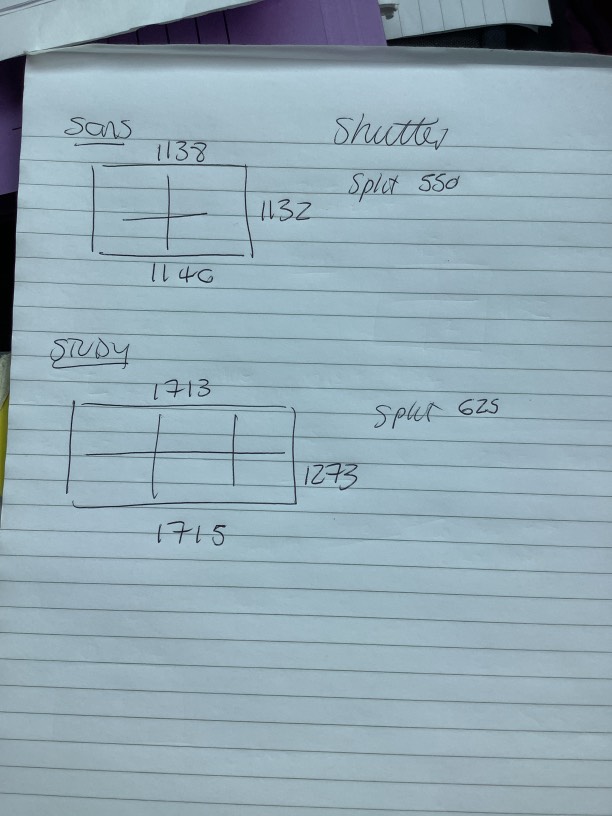 Sons
Shutter
1138
Split 550
1132
1140
STUDY
1713
Split 625
1273
1715